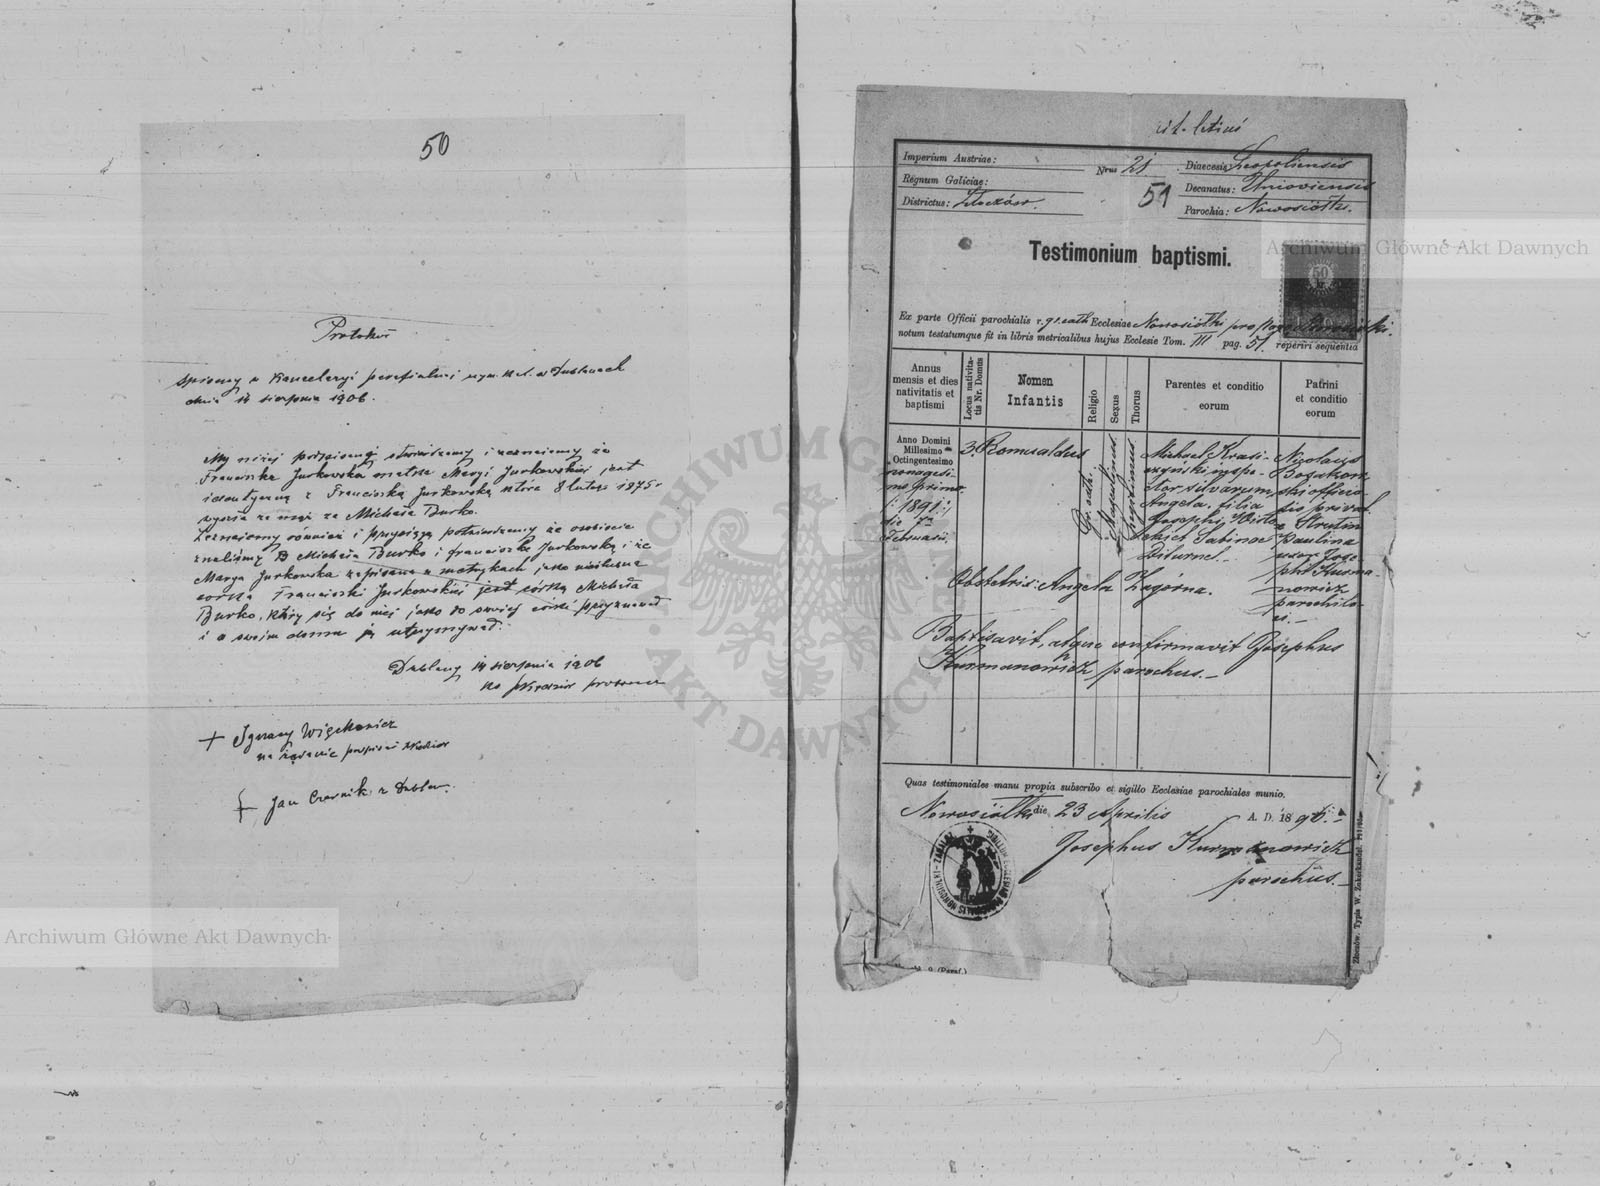 50
Protokół
spisany w Kancelaryi parafialnej rzym. kat. w Dublanach
dnia 14 sierpnia 1906.
My niżej podpisani stwierdzamy i zeznajemy że
Franciszka Jurkowska matka Maryi Jurkowskiej jest
identyczną z Franciszką Jurkowską która 8 lutego 1875 r
wyszła za mąż za Michała Burko.
Zeznajemy również i przysięgą potwierdzamy że osobiście
znaliśmy Michała Burko i Franciszkę Jurkowską i że
Marya Jurkowska zapisana w metrykach jako nieślubna
córka Franciszki Jurkowskiej jest córką Michała
Burko, który się do niej jako do swojej córki przyznawał
i w swoim domu ją utrzymywał.
Dublany 14 sierpnia 1906
+ Ignacy Więckowicz
na żądanie podpisał
+ Jan Czernik z Dublan.
rit. latini
Imperium Austriae:
Nrus 21
Diaecesis Leopoliensis
Regnum Galiciae:
51
Decanatus: Unioviensis
Districtus: Złoczów.
Parochia: Nowosiółki.
Testimonium baptismi.
50
Ex parte Officii parochialis r. gr. cath Ecclesiae Nowosiółki
notum testatumque fit in libris metricalibus hujus Ecclesie Tom. III pag. 51. reperiri sequentia
Annus mensis et dies nativitatis et baptismi
Locus nativitatis Nr. Domus
Nomen Infantis
Religio
Sexus
Thorus
Parentes et conditio eorum
Patrini et conditio eorum
Anno Domini
Millesimo
Octingentesimo
nonagesi-
mo primo
1891
die 7ma
Februarii.
3
Romualdus
Gr. cath.
Masculinus
Legitimus
Michael Krasi-
czyński inspe-
ctor silvarum,
Angela, filia
Josephi
et Sabinae
Diturnel.
Nicolaus
Bogatkow-
ski officia-
lis privat.
z Strutin
Paulina
uxor Jose-
phi Kurma-
nowicz
parochi lo-
ci.
Obstetrix: Angela Zagórna.
Baptisavit, atque confirmavit Josephus
Kurmanowicz parochus.
Quas testimoniales manu propia subscribo et sigillo Ecclesiae parochiales munio.
Nowosiółki die 23 Aprilis A. D. 189
Josephus Kurmanowicz
parochus.
Złoczów. Typis W. Zukerkandel.
Archiwum Główne Akt Dawnych
Archiwum Główne Akt Dawnych
ARCHIWUM GŁÓWNE AKT DAWNYCH